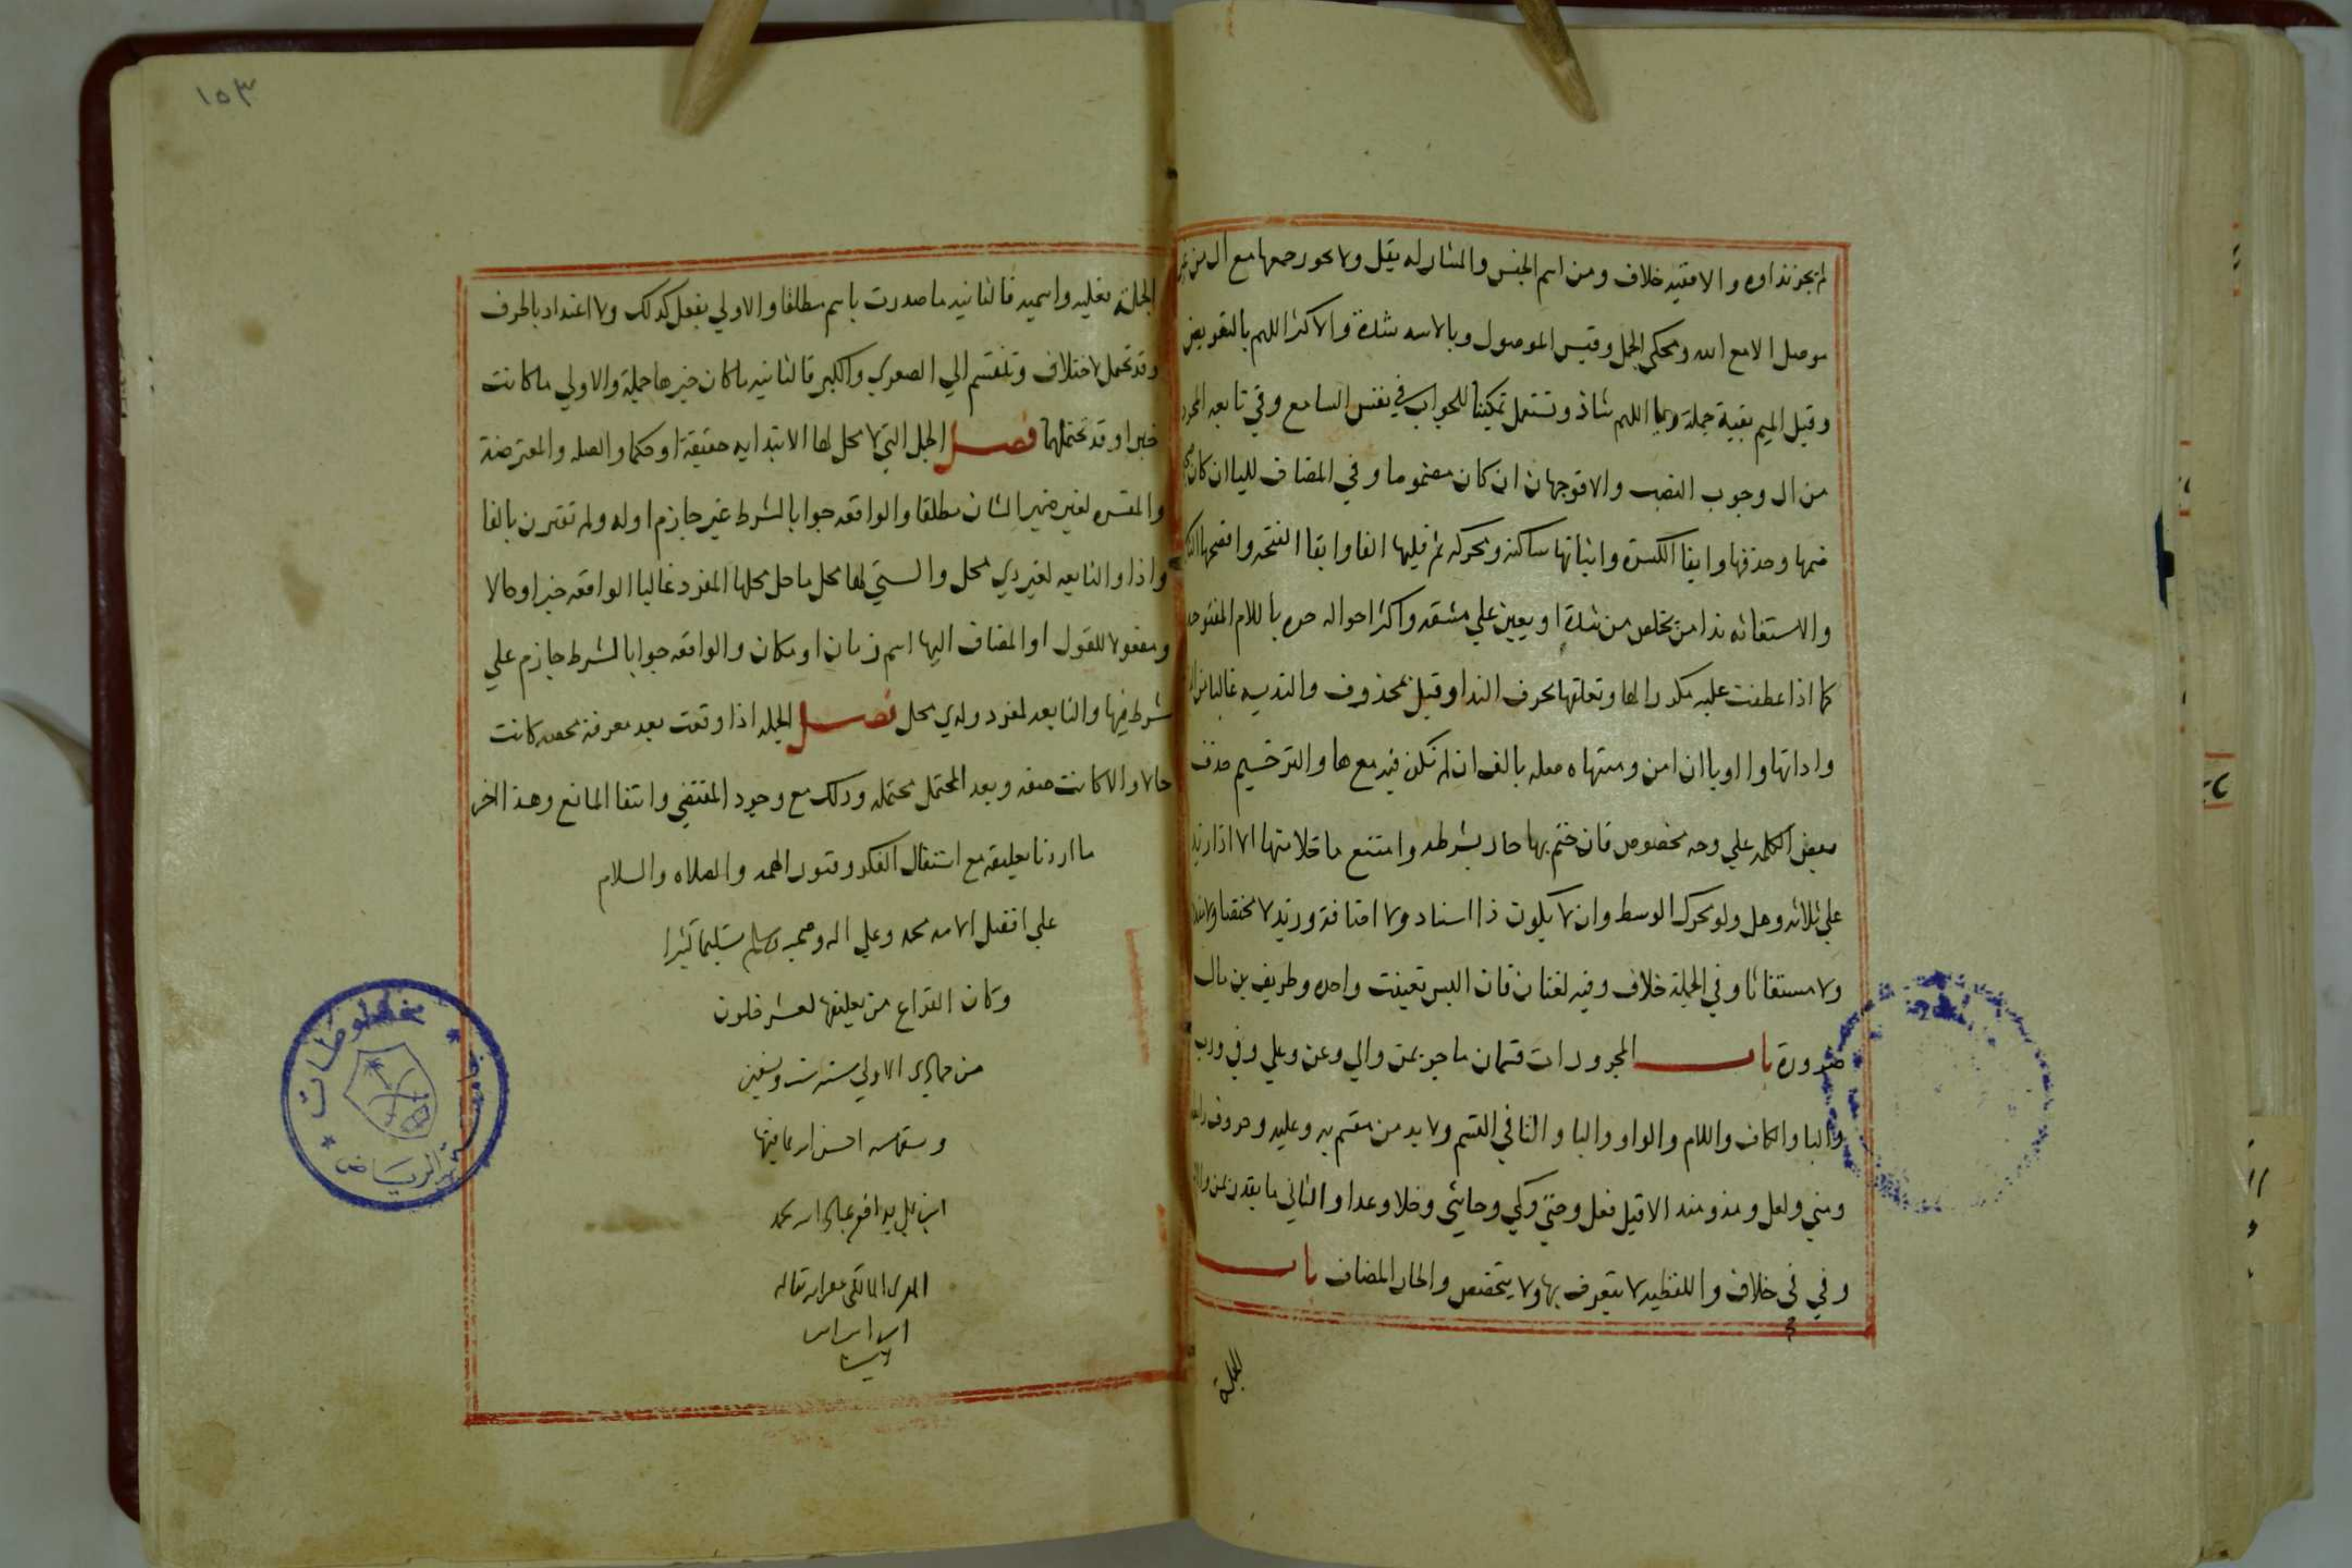 لم يجز نداوه والا ففيه خلاف ومن اسم الجنس والمشار له يقل ولا يجوز جمعها مع ال من غير
موصل الا مع الله ومحكي الجمل وقيس الموصول وبالاسد شدة والاكثر اللهم بالتعويض
وقيل الميم بقية جملة ويا اللهم شاذ وتستعمل تمكينا للجواب في نفس السامع وفي تابعه المجرد
من ال وجوب النصب والا فوجهان ان كان مضموما وفي المضاف لليا ان كان
ضمها وحذفها وابقا الكسرة واثباتها ساكنة ومحركة ثم قلبها الفا وابقا الفتحه وافصحها
والاستغاثه ندا من يخلص من شدة او يعين علي مشقه واكثر احواله جره باللام المفتوحه
كما اذا عطفت عليه مكررا لها وتعلقها بحرف الندا وقيل بمحذوف والندبه غالبا
واداتها وا او يا ان امن ومنتهاه صله بالف ان لم تكن فيه مع ها والترخيم حذف
بعض الكلمه علي وجه مخصوص فان ختم بها جاز بشرطه وامتنع ما خلا منها الا اذا زيد
علي ثلاثه وهل ولو محرك الوسط وان لا يكون ذا اسناد ولا اضافة وزيد لا مختصا ولا
ولا مستغاثا وفي الجملة خلاف وفيه لغتان فان البس تعينت واحده وطريف بن مال
ضرورة باب المجرورات قسمان ما جر بمن والي وعن وعلي وفي ورب
والبا والكاف واللام والواو والبا والتا في القسم ولا بد من مقسم به وعليه وحروف
ومتي ولعل ومذ ومنذ الا قبل فعل وحتي وكي وحاشي وخلا وعدا والثاني ما يقدر بمن
وفي في خلاف واللفظيه لا يتعرف بها ولا يتخصص والجار المضاف باب
الجملة
١٥٣
الجملة فعليه واسميه فالثانيه ما صدرت باسم مطلقا والاولي بفعل كذلك ولا اعتداد بالحرف
وقد تحمل لاختلاف وتنقسم الي الصغري والكبر فالثانيه ما كان خبرها جملة والاولي ما كانت
خبرا وقد تحتملهما فصل الجمل التي لا محل لها الابتدايه حقيقة او حكما والصله والمعترضة
والمفسره لغير ضمير الشان مطلقا والواقعه جوابا لشرط غير جازم اوله ولم تقترن بالفا
واذا والتابعه لغير ذي محل والستي لها محل ما حل محلها المفرد غالبا الواقعه خبرا وحالا
ومفعولا للقول او المضاف اليها اسم زمان او مكان والواقعه جوابا لشرط جازم علي
شرط فيها والتابعه لمفرد ولذي محل فصل الجمله اذا وقعت بعد معرفة محضه كانت
حالا والا كانت صفه وبعد المحتمل محتمله وذلك مع وجود المقتضي وانتفا المانع وهذا اخر
ما اردنا تعليقه مع اشتغال الفكر وفتور الهمه والصلاه والسلام
علي افضل الامه محمد وعلي اله وصحبه وسلم تسليما كثيرا
وكان الفراغ من تعليقها لعشر خلون
من جمادي الاولي سنه ست وتسعين
وتسعمايه احسن الله عاقبتها
المالكي غفر الله تعاله
مخطوطات
الرياض